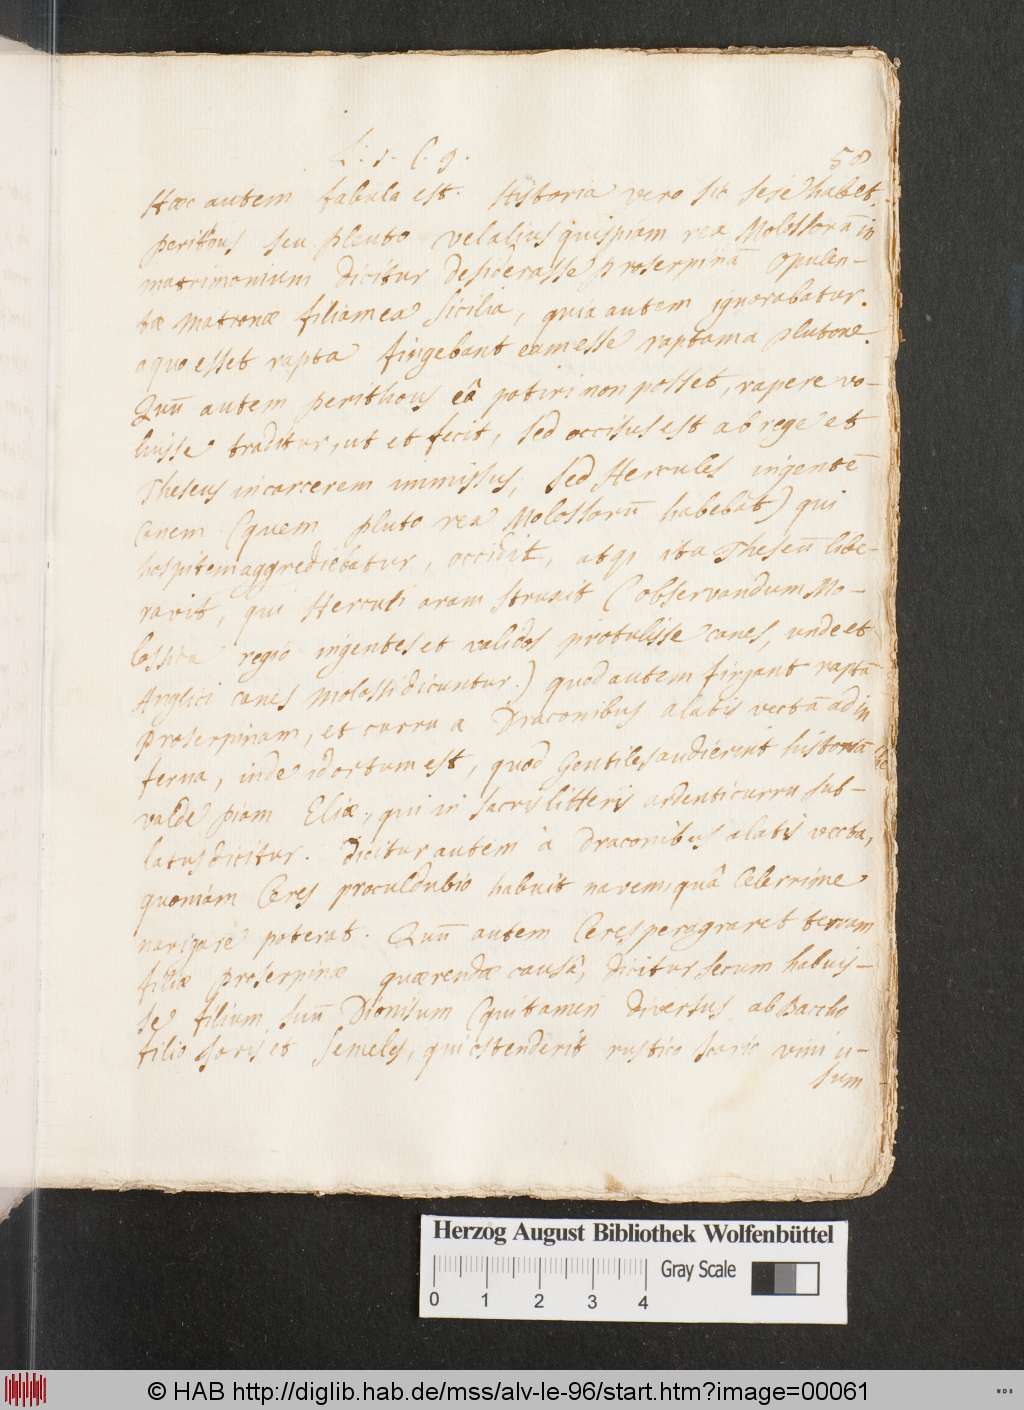 L. 1. C. 9.
58
Hæc autem fabula est. Historia vero sic sese habet.
perithous seu pluto vel alius quispiam rex Molossorū in
matrimonium dicitur desiderasse proserpinā opulen-
tæ matronæ filiam ea Sicilia, quia autem ignorabatur.
a quo esset rapta fingebant eam esse raptam a plutone.
Quū autem perithous eâ potiri non posset, rapere vo-
luisse traditur, ut et fecit, sed occisus est ab rege et
Theseus in carcerem immissus, sed Hercules ingentē
canem (quem pluto rex Molossorū habebat) qui
hospitem aggrediebatur, occidit, atq; ita Theseū libe-
ravit, qui Herculi aram struxit (observandum Mo-
lossica regio ingentes et validos protulisse canes, unde et
Anglici canes molossi dicuntur.) quod autem finjant raptā
proserpinam, et curru a Draconibus alatis vectā ad in
ferna, inde id ortum est, quod Gentiles audierint historiā
valde piam Eliæ, qui in sacris litteris ardenti curru sub-
latus dicitur. Dicitur autem à Draconibus alatis vecta,
quoniam Ceres proculdubio habuit navem, quâ celerrime
navigare poterat. Quū autem Ceres peragraret terram
filiæ proserpinæ quærendæ causâ, dicitur secum habuis-
se filium suū Dionisum (qui tamen diversus ab Baccho
filio Jovis et Semeles, qui ostenderit rustico Icario vini u-
sum
Herzog August Bibliothek Wolfenbüttel
Gray Scale
0 1 2 3 4
© HAB http://diglib.hab.de/mss/alv-le-96/start.htm?image=00061